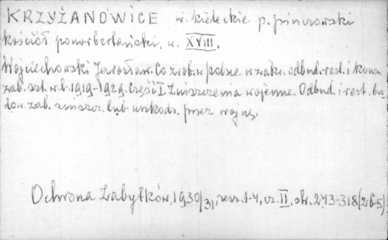 KRZYŻANOWICE w. kieleckie p. pińczowski
kościół ponorbertański, w. XVIII.
Wojciechowski Jarosław. Co zrob. w Polsce w zakr. odbud. rest. i konser.
zab. szt. w l. 1919-1929. Część I. Zniszczenia wojenne. Odbud. i rest. bu
dow. zab. zniszcz. lub uszkodz. przez wojnę,
Ochrona Zabytków, 1930/31, zesz. 1-4, cz. II, str. 243-318 (265)